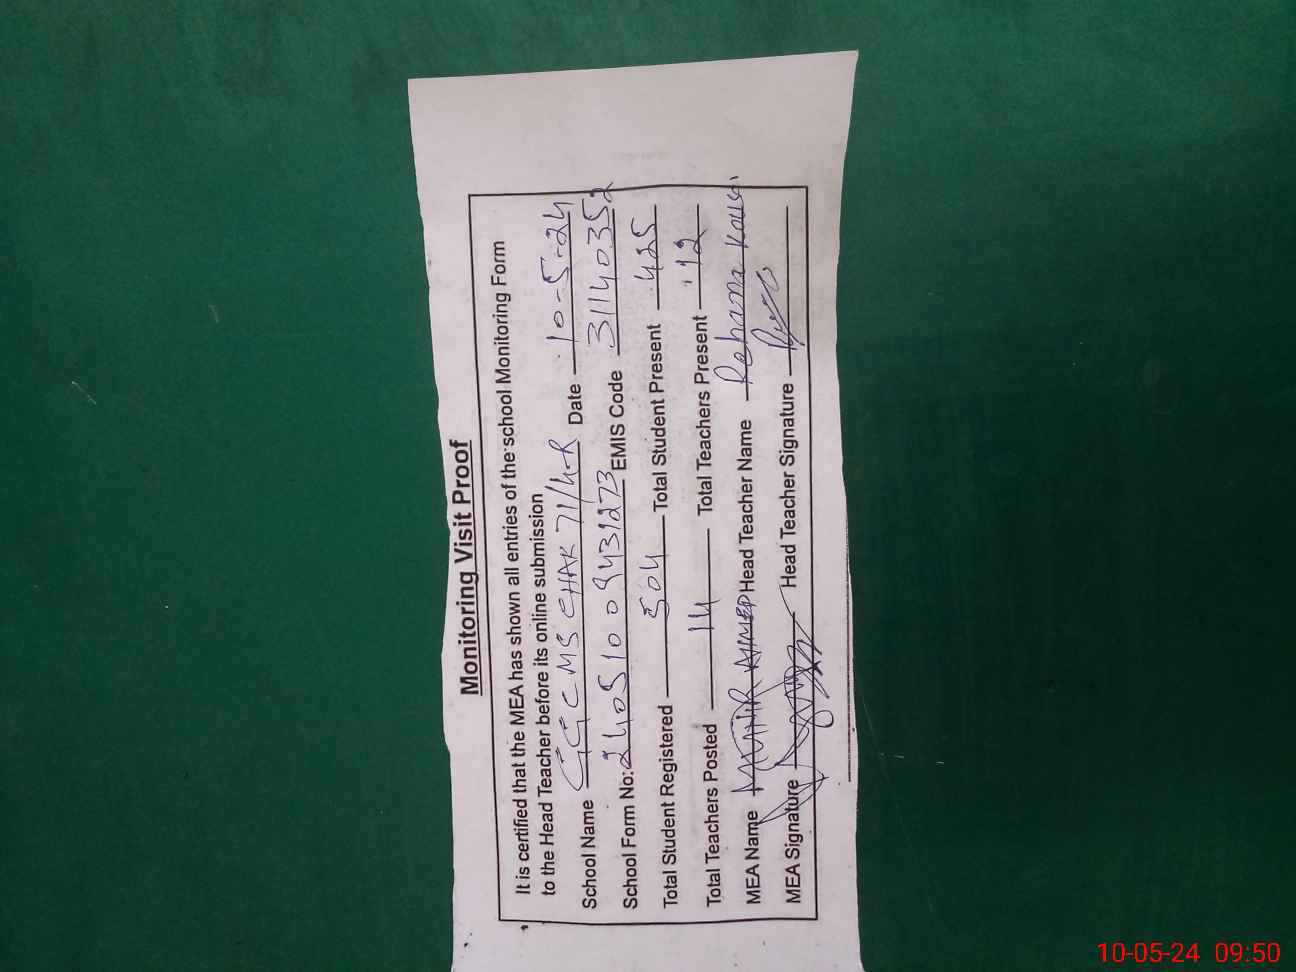 Monitoring Visit Proof
It is certified that the MEA has shown all entries of the school Monitoring Form
to the Head Teacher before its online submission
School Name GGCMS CHAK 71/4-R Date 10-5-24
School Form No: 24051009431273 EMIS Code 31140352
Total Student Registered 504 Total Student Present 425
Total Teachers Posted 14 Total Teachers Present 12
MEA Name MUNIR AHMED Head Teacher Name Rehana Kousr
MEA Signature Head Teacher Signature
10-05-24 09:50